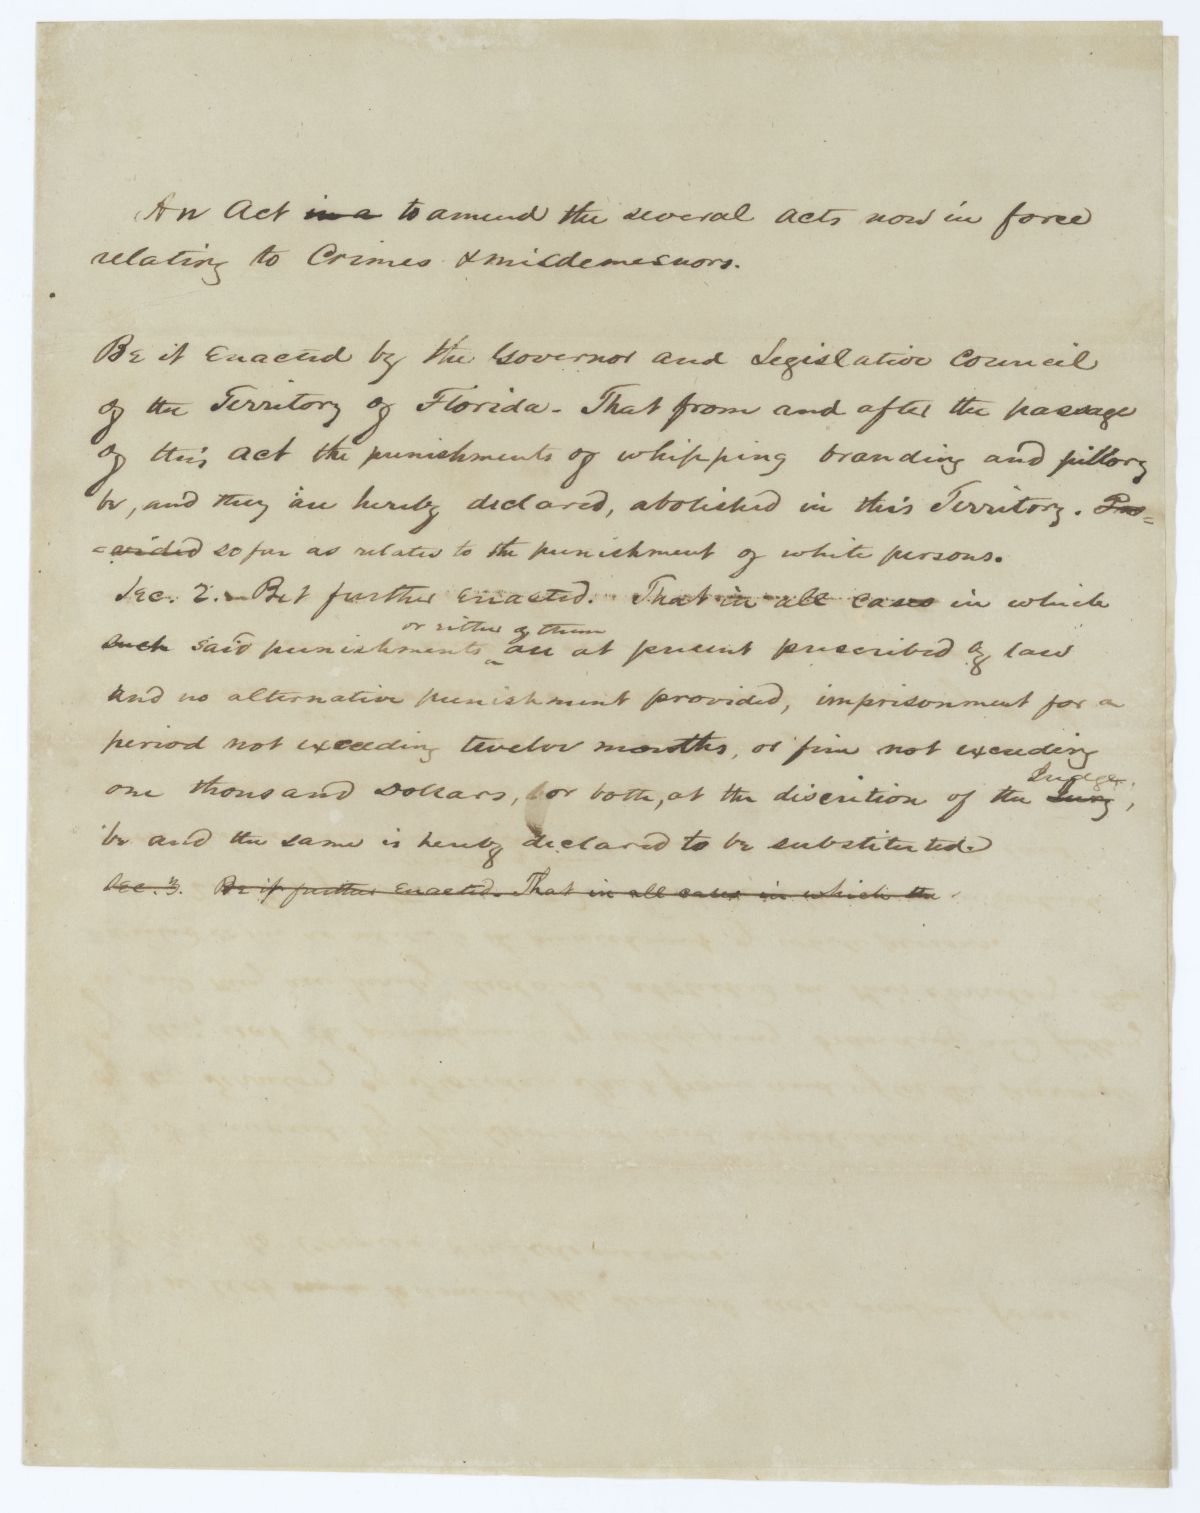 An Act in a to amend the several acts now in force
relating to Crimes & misdemesnors.
Be it Enacted by the Governor and Legislative Council
of the Territory of Florida. That from and after the passage
of this act the punishments of whipping branding and pillory
be, and they are hereby declared, abolished in this Territory. Pro=
=vided so far as relates to the punishment of white persons.
Sec. 2. Be it further enacted. That in all cases in which
or either of them
such said punishments are at present prescribed by law
and no alternative punishment provided, imprisonment for a
period not exceeding twelve months, or fine not exceeding
Judge
one thousand Dollars, or both, at the discretion of the Jury,
be and the same is hereby declared to be substituted.
Sec. 3. Be it further Enacted. That in all cases in which the